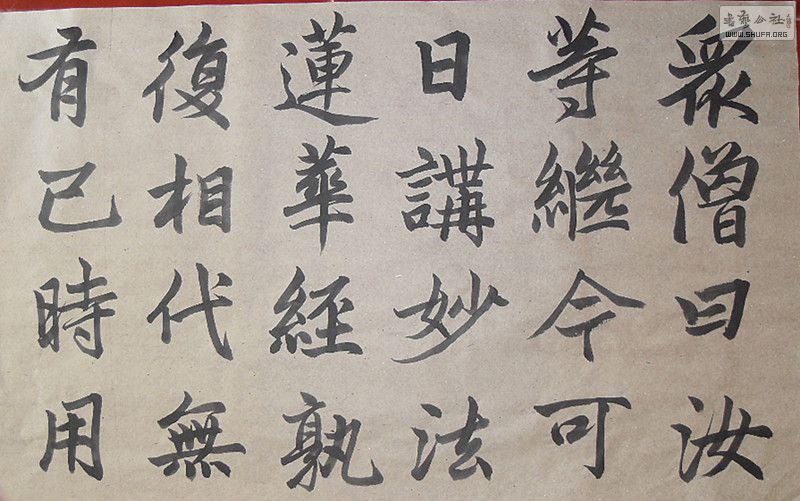 眾僧曰汝
等繼今可
日講妙法
蓮華經孰
復相代無
有已時用
書藝公社
WWW.SHUFA.ORG